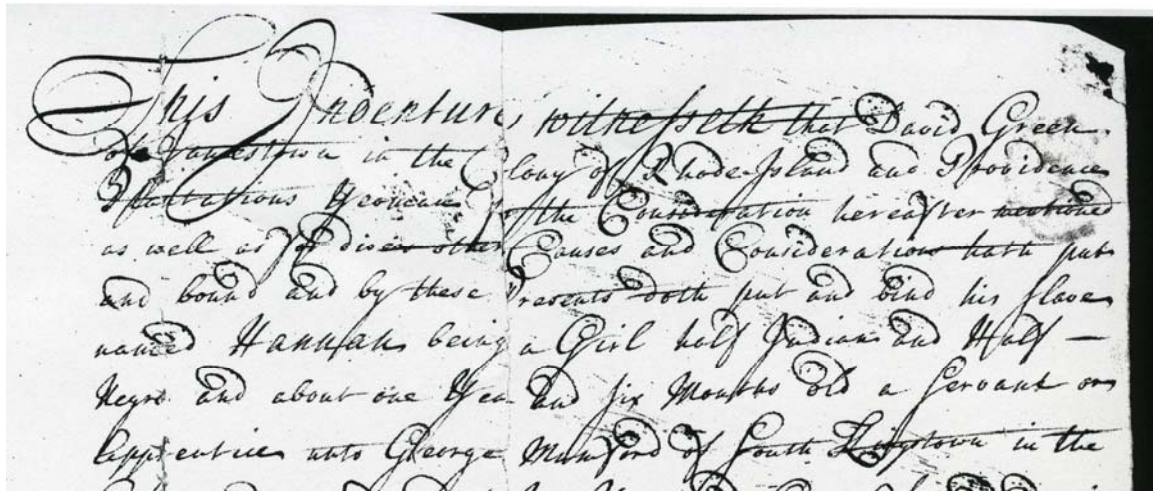 This Indenture witnesseth that David Green
of Jamestown in the Colony of Rhode-Island and Providence
Plantations Yeoman for the Consideration hereafter mentioned
as well as for divers other Causes and Considerations hath put
and bound and by these Presents doth put and bind his slave
named Hannah being a Girl half Indian and Half —
Negro and about one Year and six Months old a Servant or
Apprentice unto George Mumford of South Kingstown in the